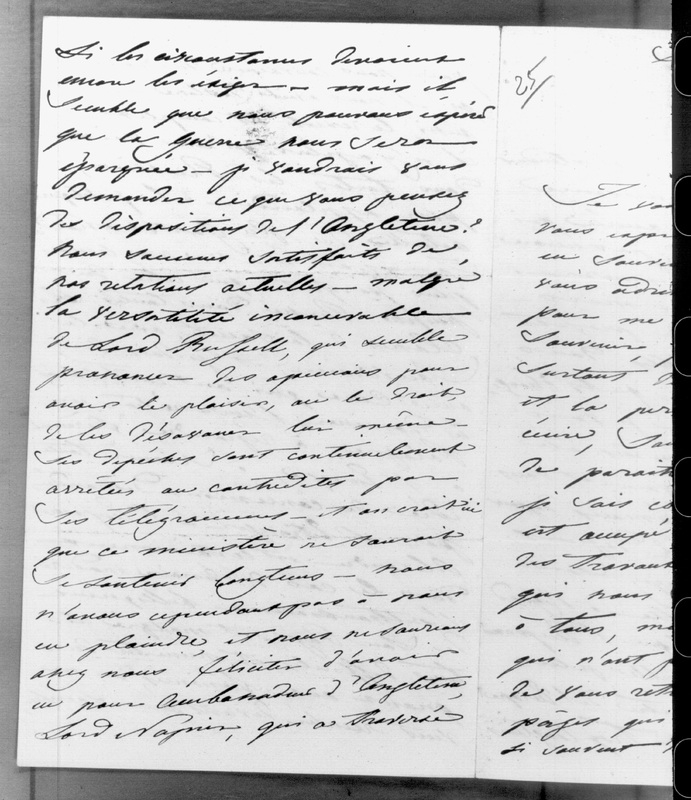 Si les circonstances devaient
encore les éxiger – mais il
semble que nous pouvons espérer
que la guerre nous sera
épargnée – je voudrais vous
demander ce que vous pensez
des dispositions de l'Angleterre?
Nous sommes satisfaits de
nos relations actuelles – malgré
la versatilité inconcevable
de Lord Russell, qui semble
prononcer des opinions pour
avoir le plaisir, ou le droit,
de les désavouer lui même –
Ses depêches sont continuelement
arrêtées ou contredites par
ses télégrammes – et on croit ici
que ce ministère ne saurait
se soutenir longtems – nous
n'avons cependant pas à nous
en plaindre, et nous ne saurions
assez nous féliciter d'avoir
eu pour Ambassadeur d'Angleterre
Lord Napier, qui a traversé
25/
Je
vous
en
vous
pour me
Souvenir,
Surtout
et la
de
je sais
est occupé
des travaux
qui nous
à tous,
qui n'ont
de vous
qui
si souvent